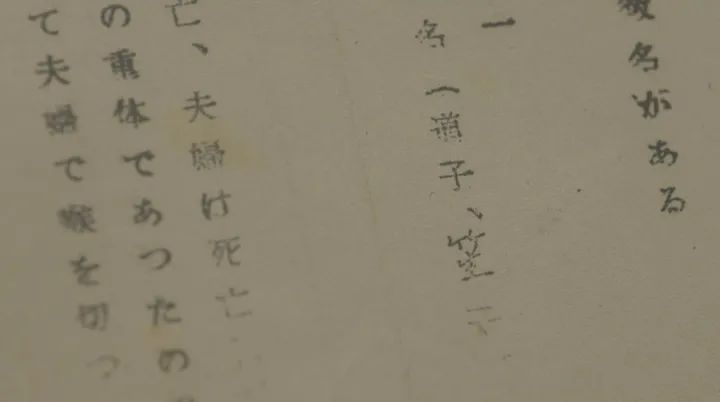 名がある
一
名（道子、笠
亡、夫婦は死亡
の重体であつたの
て夫婦で喉を切つ